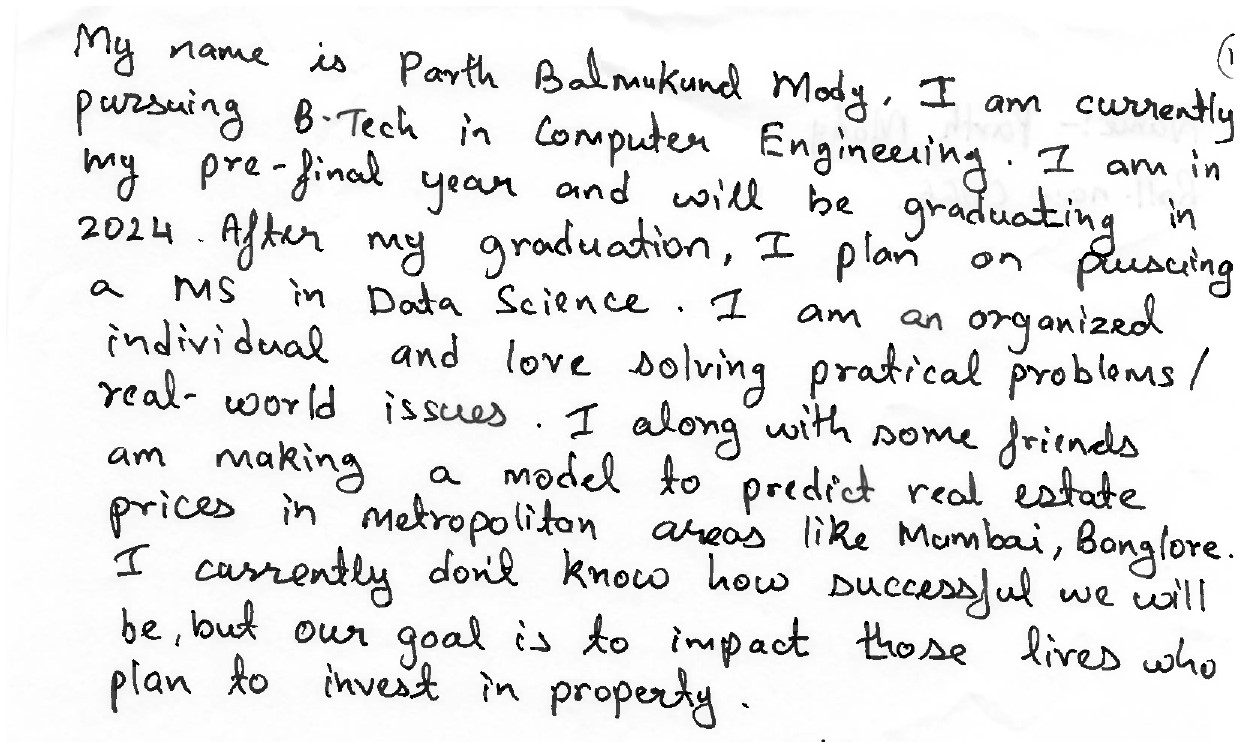 My name is Parth Balmukund Mody. I am currently
pursuing B.Tech in Computer Engineering. I am in
my pre-final year and will be graduating in
2024. After my graduation, I plan on pursuing
a MS in Data Science. I am an organized
individual and love solving pratical problems/
real-world issues. I along with some friends
am making a model to predict real estate
prices in metropolitan areas like Mumbai, Banglore.
I currently don't know how successful we will
be, but our goal is to impact those lives who
plan to invest in property.